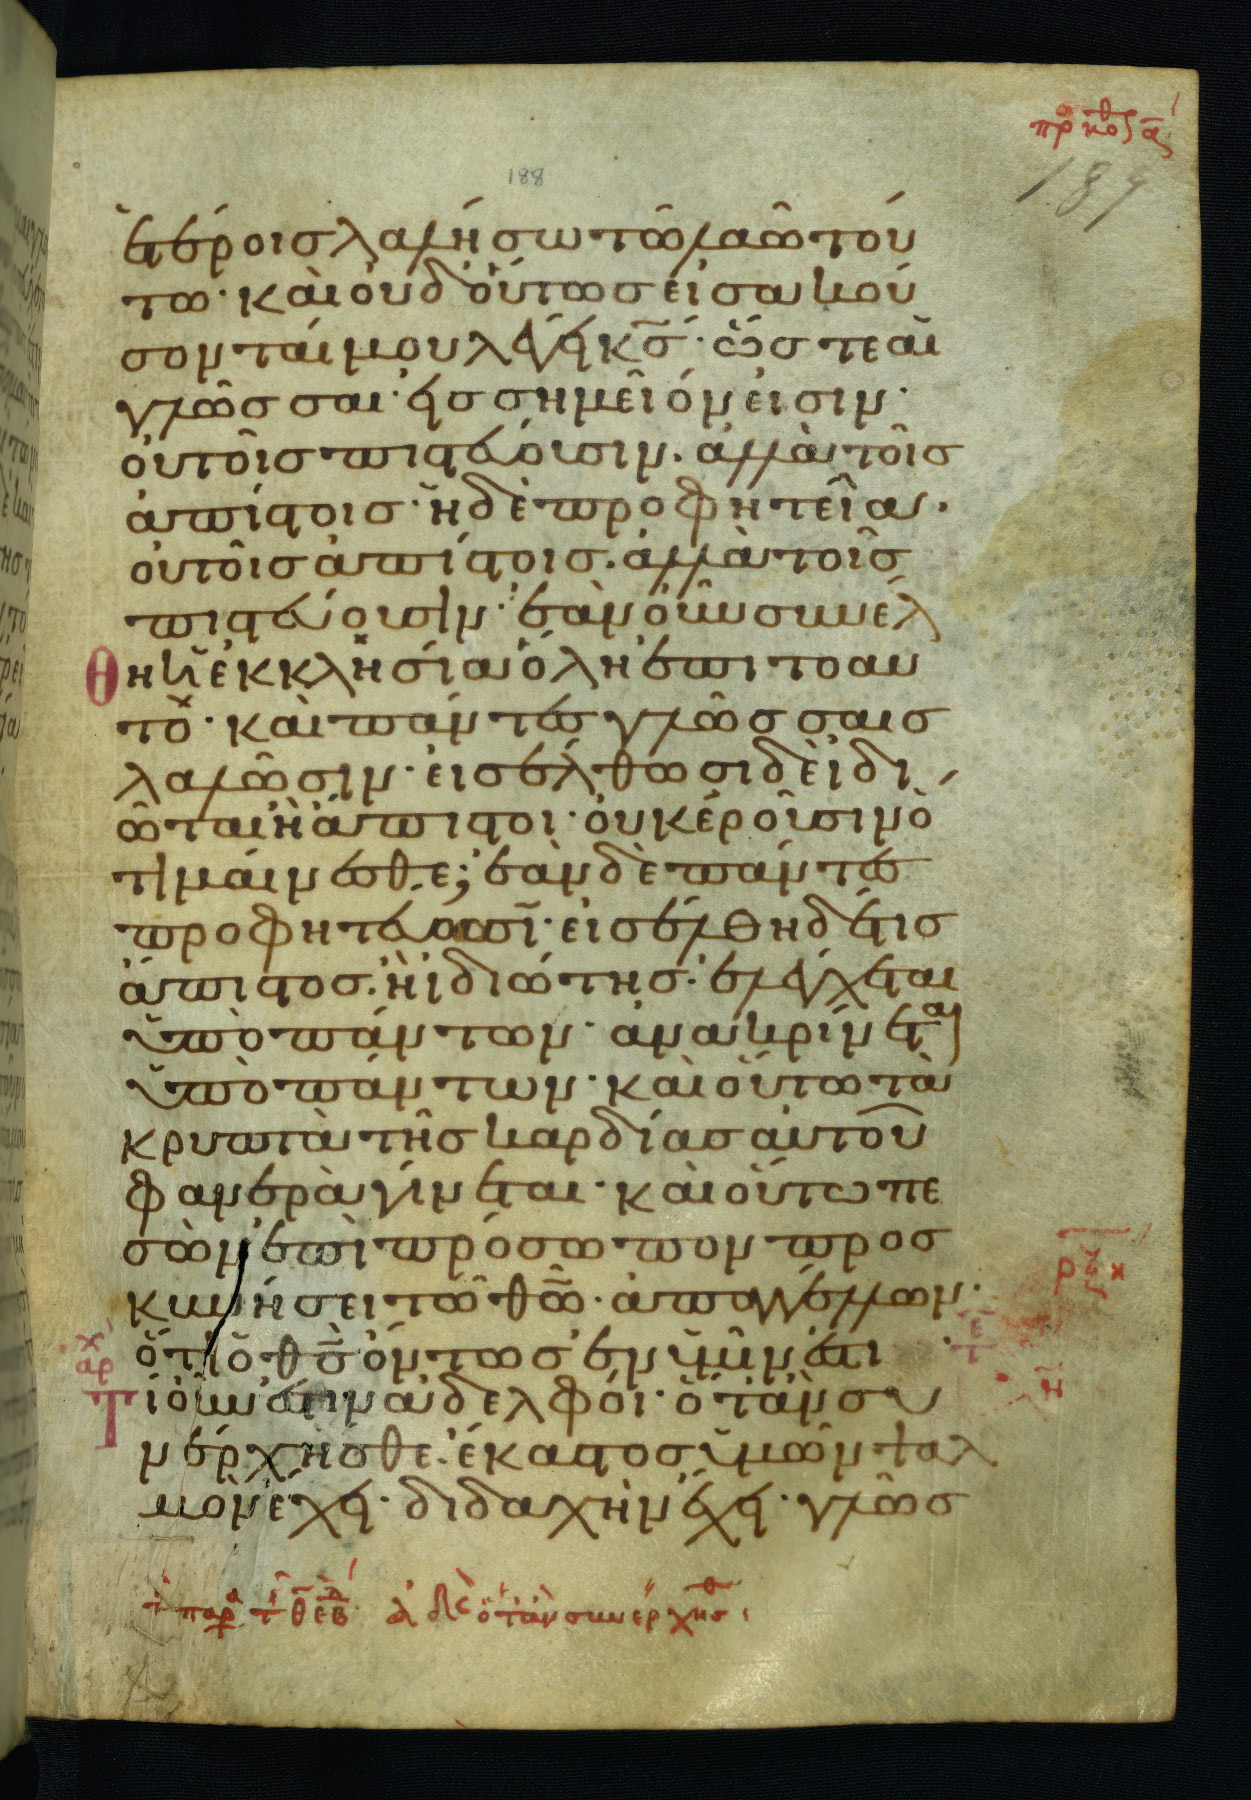 πρ κοῤ α
188
189
ἑτέροις λαλήσω τῶ λαῶ τού
τω· καὶ οὐδ οὕτως εἰσακού
σονταί μου λέγει κ̅ς̅· ὥστε αἱ
γλῶσσαι· εἰς σημεῖόν εἰσιν·
οὐ τοῖς πιστεύουσιν. ἀλλὰ τοῖς
ἀπίστοις· ἡ δὲ προφητεία.
οὐ τοῖς ἀπίστοις. ἀλλὰ τοῖς
πιστεύουσιν· ἐὰν οὖν συνέλ
θη ἡ ἐκκλησία ὅλη ἐπι το αυ
το· καὶ πάντες γλώσσαις
λαλῶσιν· εἰσέλθωσι δὲ ἰδι
ῶται ἢ ἄπιστοι· οὐκ ἐροῦσιν ὅ
τι μαίνεσθε; ἐὰν δὲ πάντες
προφητεύωσι· εἰσέλθη δέ τις
ἄπιστος. ἢ ἰδιώτης· ἐλέγχεται
ὑπὸ πάντων· ἀνακρίνεται
ὑπὸ πάντων· καὶ οὕτω τὰ
κρυπτὰ τῆς καρδίας αὐτοῦ
φανερὰ γίνεται· καὶ οὕτω πε
σὼν ἐπὶ πρόσωπον προς
κυνήσει τῶ θ̅ω̅· ἀπαγγέλλων·
ὅτι ὁ θ̅ς̅ ὄντως ἐν ὑμῖν ἐστι
αρχ
Τί οὖν ἐστιν ἀδελφοί· ὅταν συ
νέρχησθε· ἕκαστος ὑμῶν ψαλ
μὸν ἔχει· διδαχὴν ἔχει· γλῶσ
ἀδε ὅταν συνέρχησθ